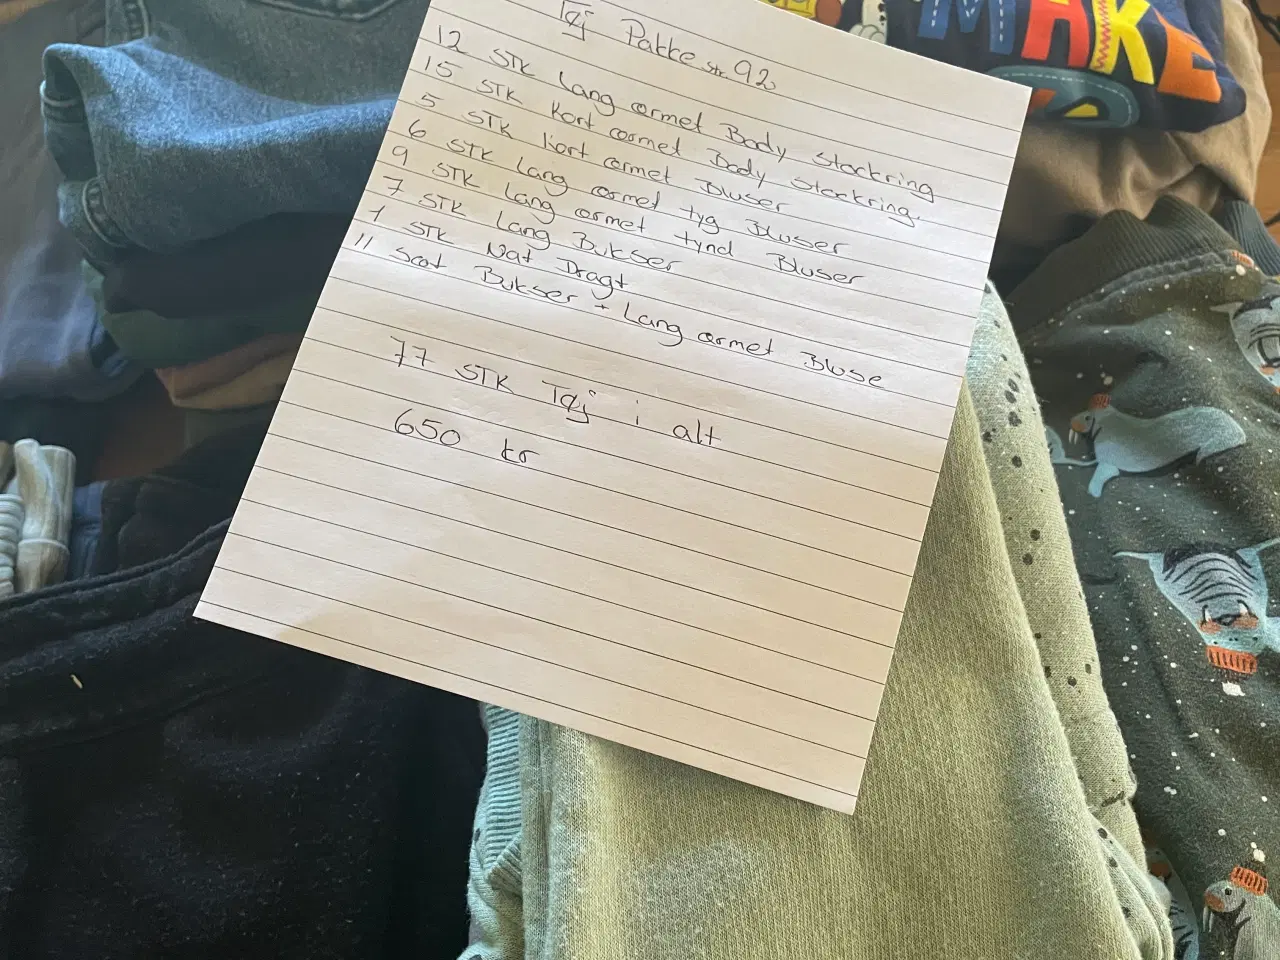 Tøj Pakke str 92
12 STK Lang ærmet Body Stockring
15 STK Kort ærmet Body Stockring.
5 STK kort ærmet Bluser
6 STK Lang ærmet tyg Bluser
9 STK Lang ærmet tynd Bluser
7 STK Lang Bukser
1 STK Nat Dragt
11 Sæt Bukser + Lang ærmet Bluse
77 STK Tøj i alt
650 kr
MAKE